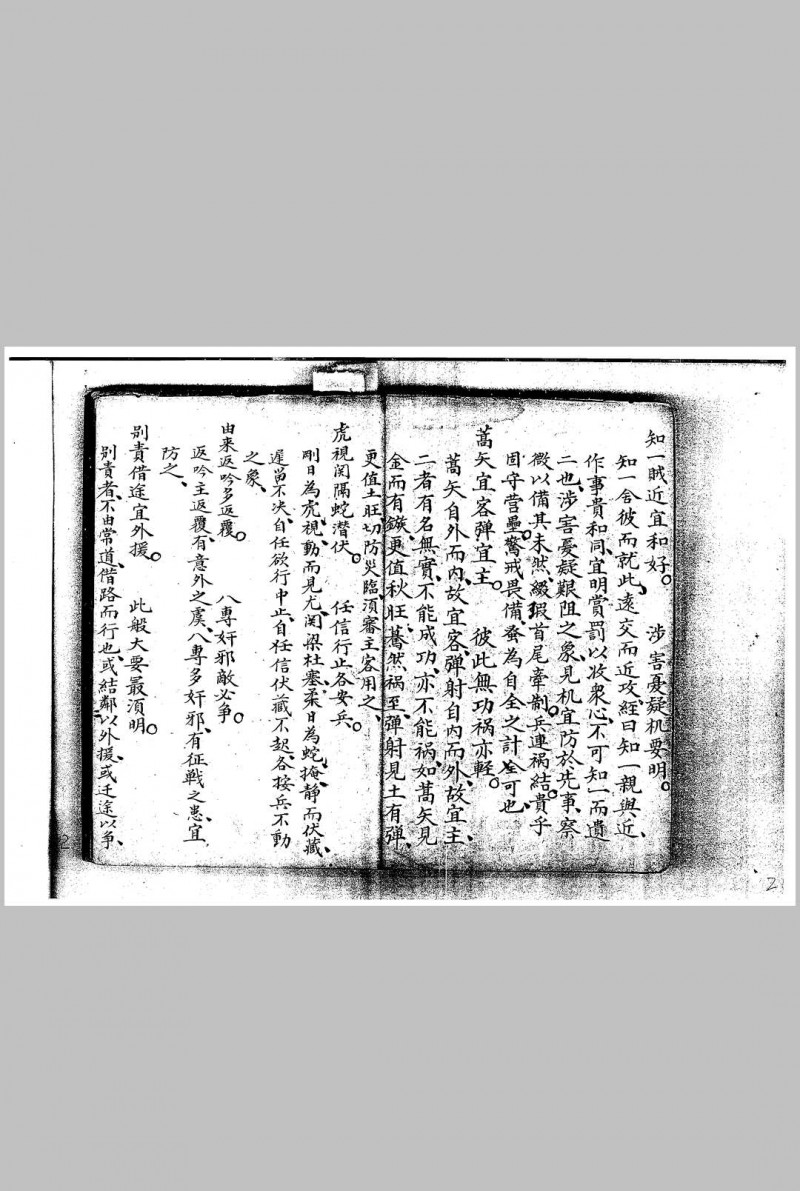 知一賊近宜和好。　涉害憂疑机要明。
知一舍彼而就此、遠交而近攻、經曰知一親與近、
作事貴和同、宜明賞罰以收衆心、不可知一而遺
二也、涉害憂疑艱阻之象、見机宜防於先事、察
微以備其未然、綴瑕首尾牽制、兵連祸結。貴乎
固守营壘、驚戒畏備、為自全之計可也、
蒿矢宜客弹宜主。　彼此無功祸亦輕。
蒿矢自外而內、故宜客、弹射自內而外、故宜主、
二者有名無實、不能成功、亦不能祸、如蒿矢見
金而有鏃、更值秋旺、驀然祸至、弹射見土有弹、
更值土旺、切防災臨、須審主客用之、
虎視関隔蛇潜伏。　任信行止各安兵。
剛日為虎視、動而見尤関梁杜塞、柔日為蛇掩、静而伏藏、
遲留不决、自任欲行中止、自任信伏藏不起、各按兵不動
之象、
由来返吟多返覆。　八專奸邪敵必争。
返吟主返覆、有意外之虞、八專多奸邪、有征戦之患、宜
防之、
别責借途宜外援。　此般大要最須明。
别責者、不由常道、借路而行也、或結鄰以外援、或迂途以争、
2
2